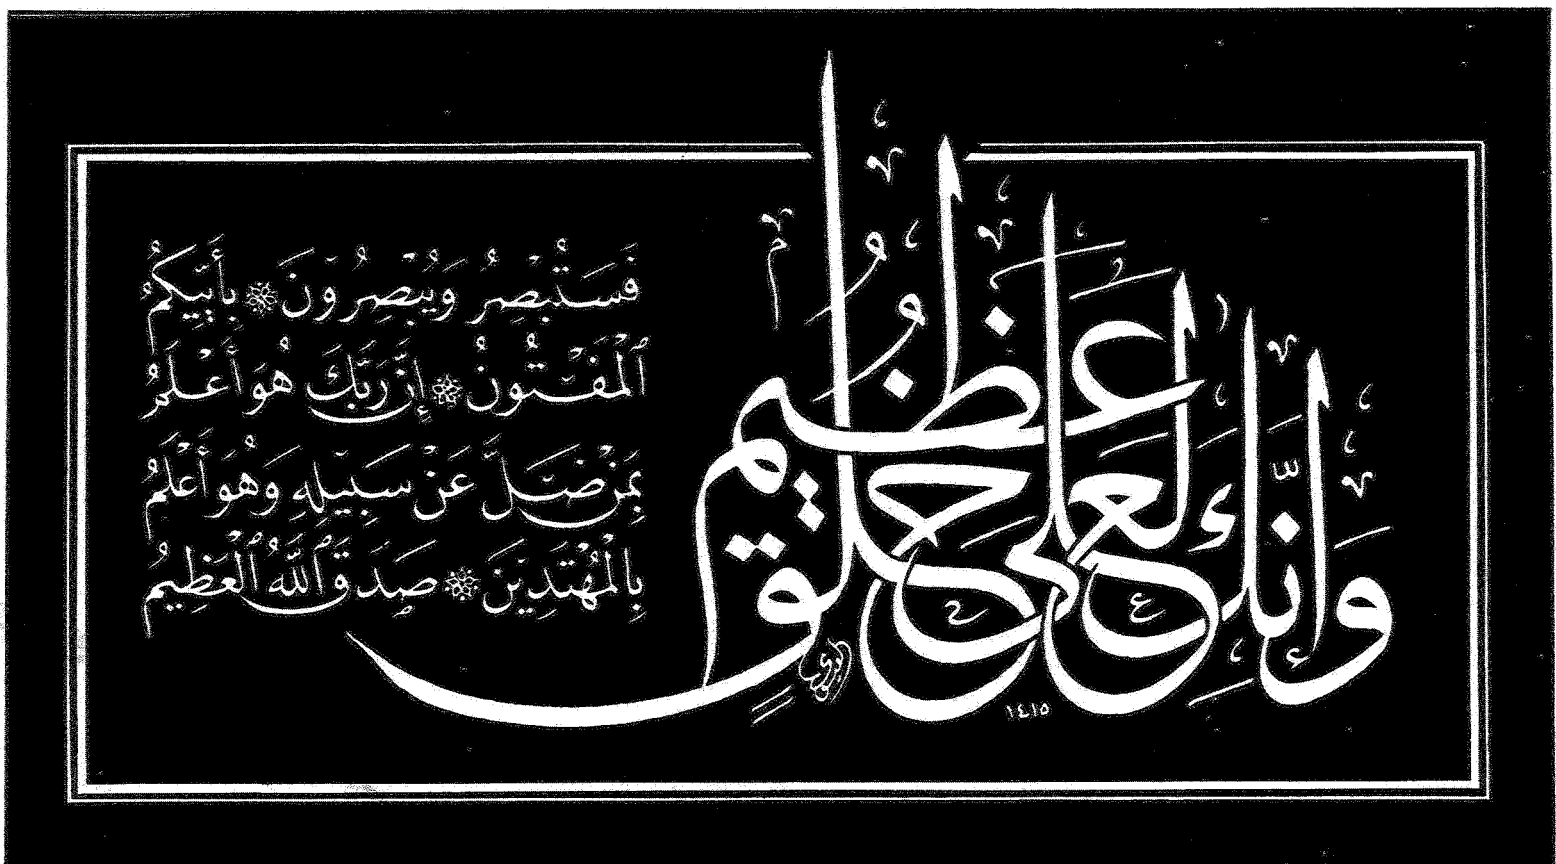 وَإِنَّكَ لَعَلَىٰ خُلُقٍ عَظِيمٍ
فَسَتُبْصِرُ وَيُبْصِرُونَ ۞ بِأَييِّكُمُ
ٱلْمَفْتُونُ ۞ إِنَّ رَبَّكَ هُوَ أَعْلَمُ
بِمَنْ ضَلَّ عَنْ سَبِيلِهِ وَهُوَ أَعْلَمُ
بِالْمُهْتَدِينَ ۞ صَدَقَ ٱللَّهُ ٱلْعَظِيمُ
١٤١٥